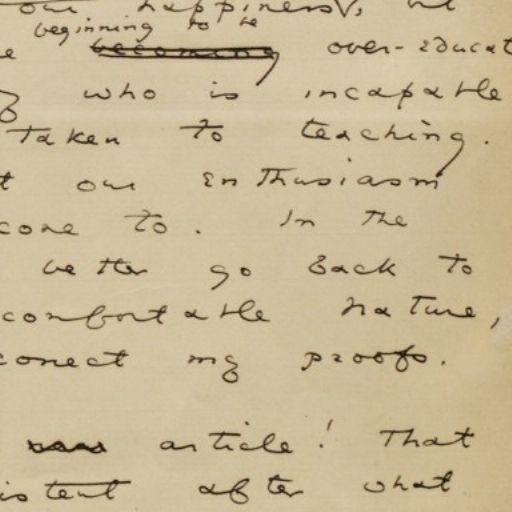 our happiness,
beginning to be
e becoming over-educat
g who is incapable
taken to teaching.
t our enthusiasm
come to. In the
better go back to
comfortable Nature,
correct my proofs.
article! That
istent after what